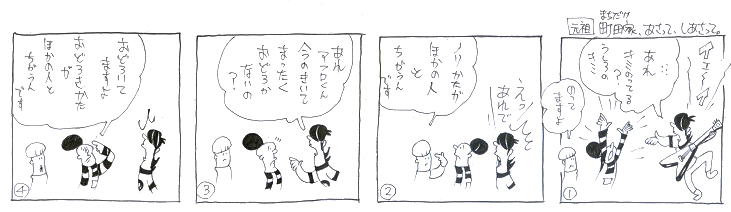 元祖 町田家、あさって、しあさって。
まちだけ
イェーイ
あれ…
キミのってる
うしろの
キミ…
のって
ますよ
①
えっ
あれで
ノリかたが
ほかの人
と
ちがうん
です
②
あれ
アフロくん
今のきいて
まったく
おどろか
ないの
?
③
おどろいて
ますよ
おどろきかた
が
ほかの人と
ちがうん
です
④